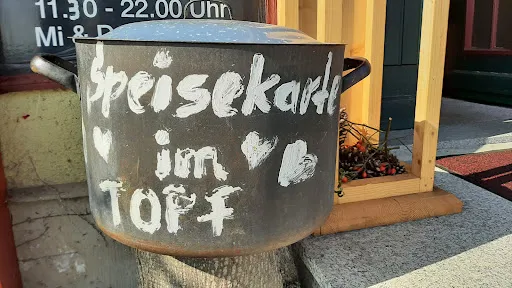 11.30 - 22.00 Uhr
Mi & D
Speisekarte
im
TOPF